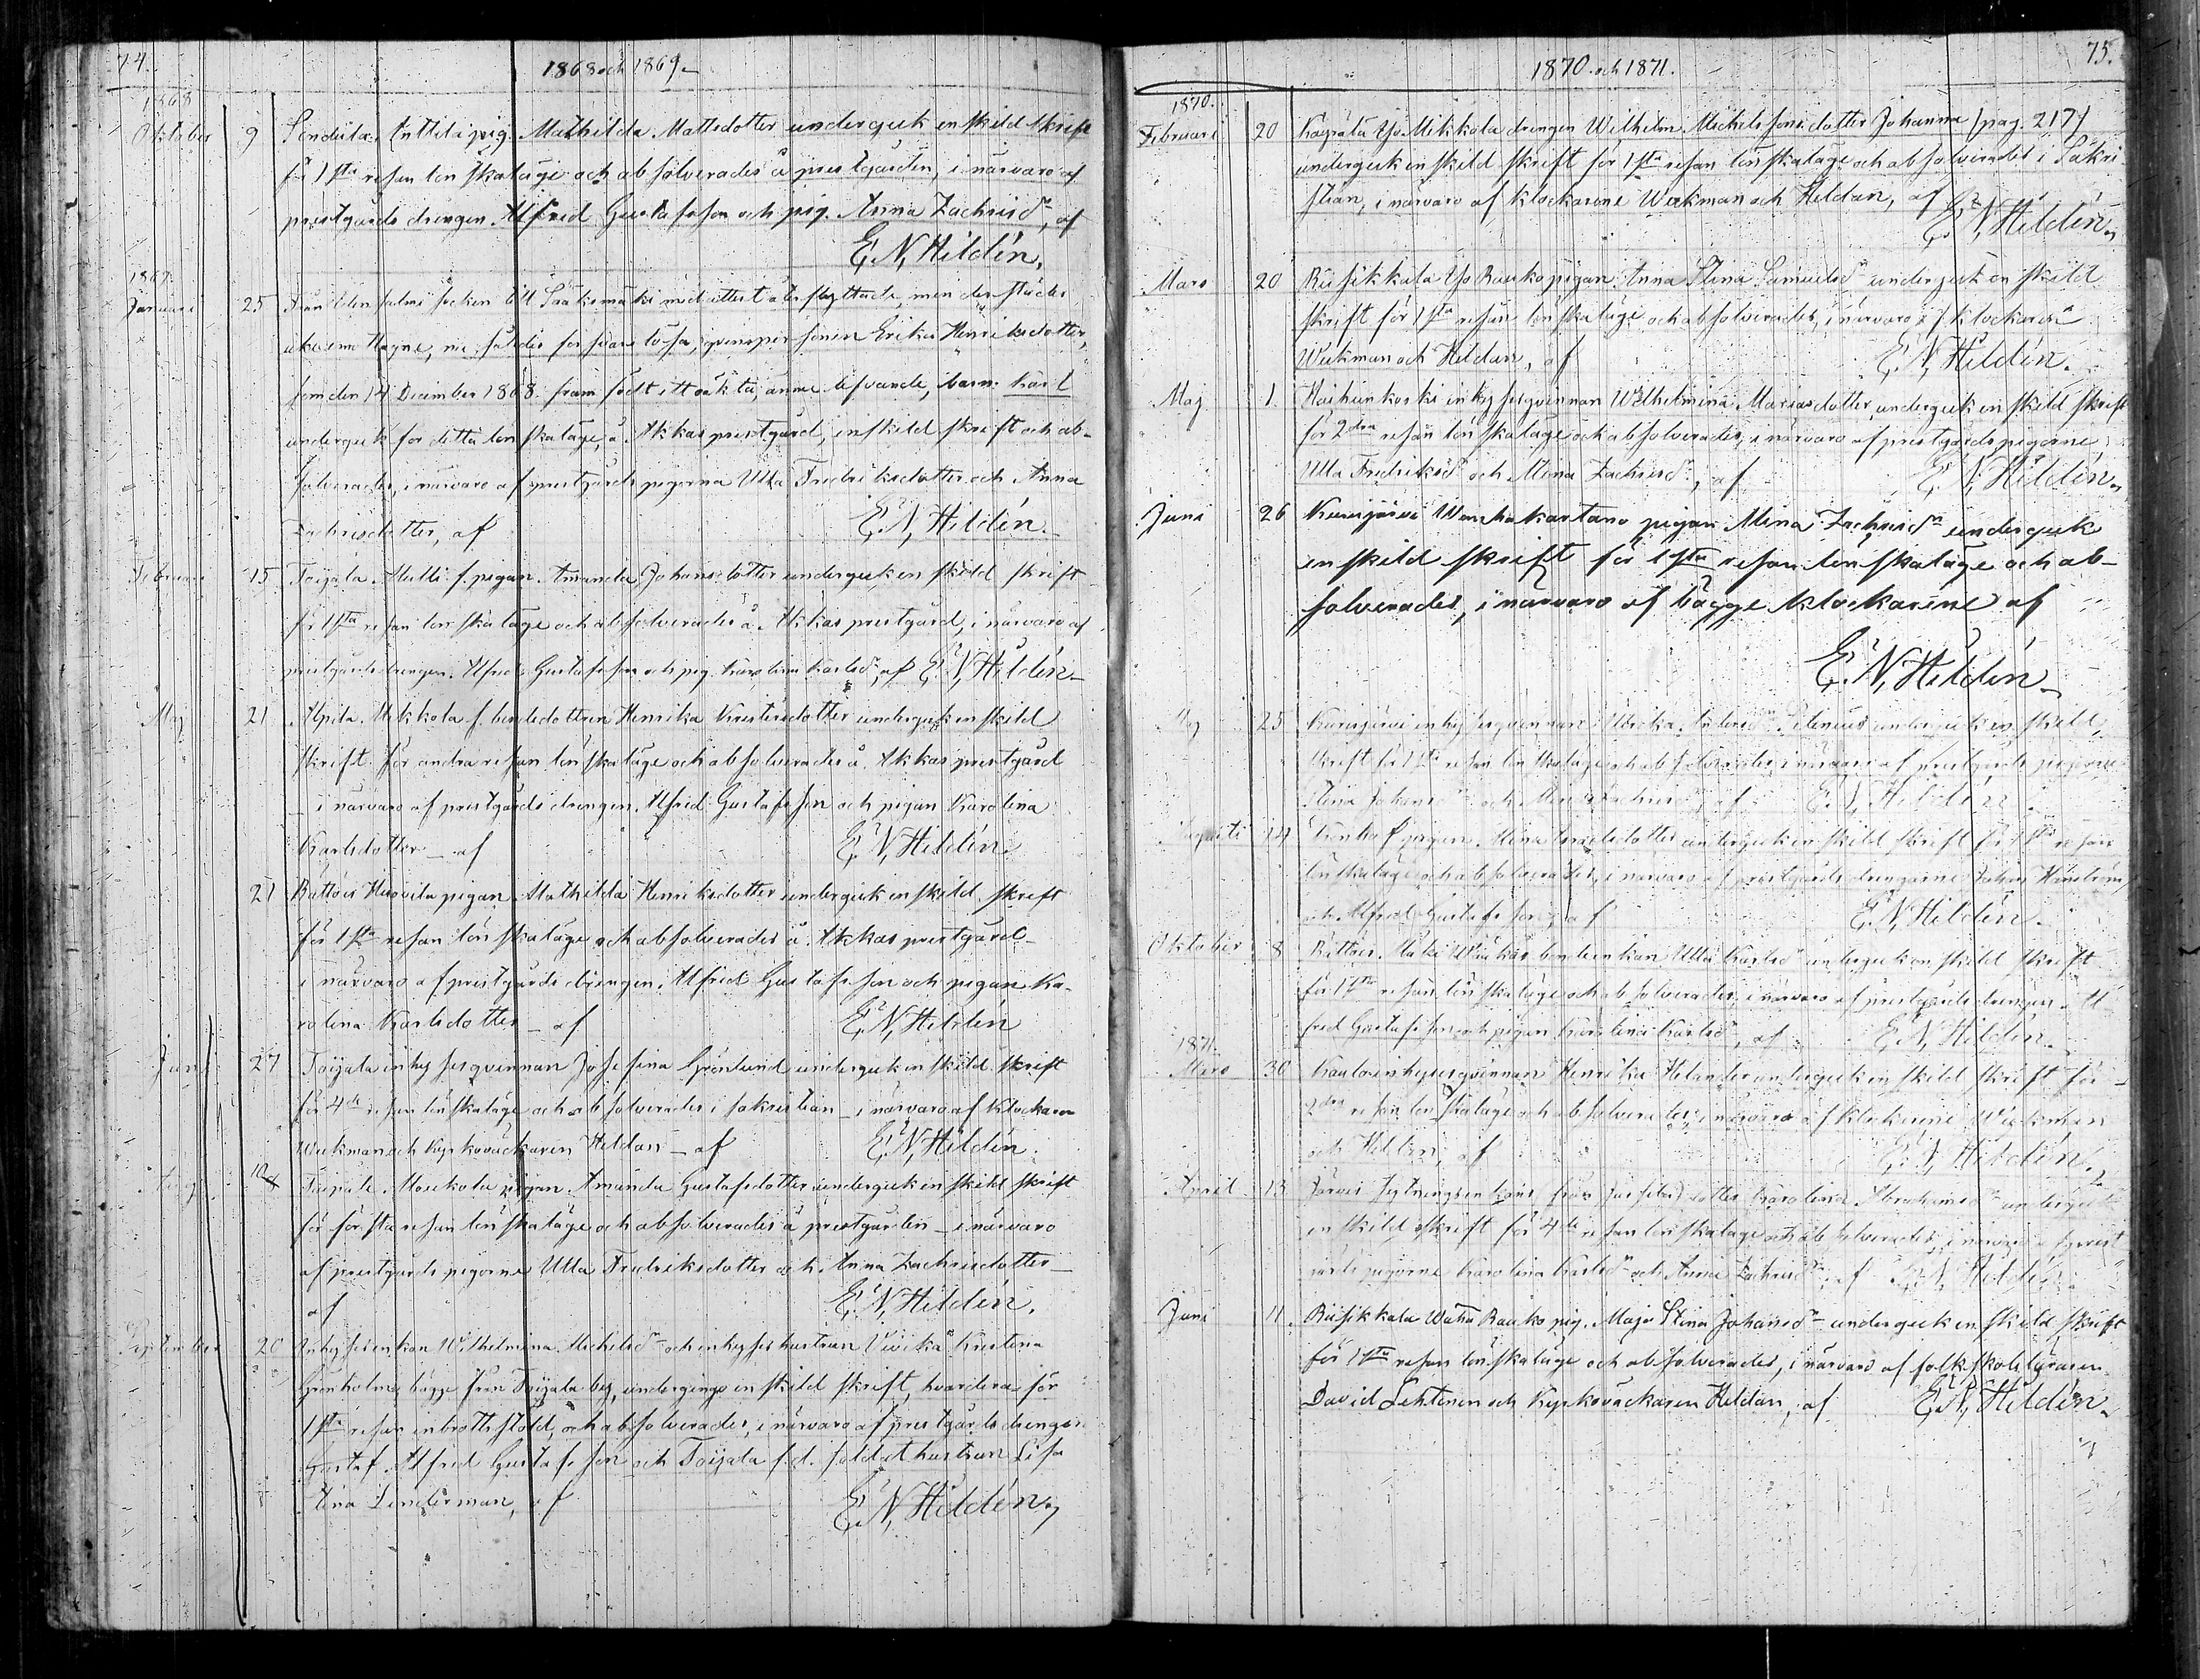 74.
1868 och 1869.
1868
Oktober 9 Anttila pig. Mathilda Mattsdotter undergick enskild skrift
för 1sta resan lönskaläge och absolverades å prestgården, i närvaro af
prestgårds drengen Alfred Gustafsson och pig. Anna Zachrisdr, af
E. N. Hildén.
1869.
Januari 25 från socken till Sääksmäki med attest men derstädes
Henriksdotter,
som den 14 December 1868 framfödt ett oäkta, ännu lefvande, barn Karl
undergick för detta lönskaläge, å Akkas prestgård, enskild skrift och ab-
solverades, i närvaro af prestgårds pigorna Ulla Fredriksdotter och Anna
Zachrisdotter, af E. N. Hildén.
Februari 15 Toijala Matti f. pigan Amanda Johansdotter undergick enskild skrift
för 1sta resan lönskaläge och absolverades å Akkas prestgård, i närvaro af
prestgårds drengen Alfred Gustafsson och pig. Karolina Karlsdr, af E. N. Hildén.
Maj 21 Mikkola f. Henrika undergick enskild
skrift för andra resan lönskaläge och absolverades å Akkas prestgård
i närvaro af prestgårds drengen Alfred Gustafsson och pigan Karolina
Karlsdotter af E. N. Hildén.
21 pigan Mathilda Henriksdotter undergick enskild skrift
för 1sta resan lönskaläge och absolverades å Akkas prestgård
i närvaro af prestgårds drengen Alfred Gustafsson och pigan Ka-
rolina Karlsdotter af E. N. Hildén
Juni 27 Toijala inhysesqvinnan Josefina Grönlund undergick enskild skrift
för 4de resan lönskaläge och absolverades i sakristian i närvaro af klockaren
Wækman och Kyrkoväckaren Heldan af E. N. Hildén.
Aug. 10 pigan Amanda Gustafsdotter undergick enskild skrift
för första resan lönskaläge och absolverades å prestgården i närvaro
af prestgårds pigorna Ulla Fredriksdotter och Anna Zachrisdotter
af E. N. Hildén.
September 20 Inhysesenkan Wilhelmina Michelsdr och inhyses hustrun Kristina
Grönholm, bägge från Toijala by, undergingo enskild skrift, hvardera för
1sta resan inbrottsstöld, och absolverades, i närvaro af prestgårds drengen
Gustaf Alfred Gustafsson och Toijala f.d. soldat hustrun Lisa
Stina Linderman, af E. N. Hildén.
75.
1870 och 1871.
1870.
Februari 20 Mikkola drengen Wilhelm Michelssons dotter Johanna (pag. 217)
undergick enskild skrift för 1sta resan lönskaläge och absolverades i Sakri
stian, i närvaro af klockarene Wækman och Heldan, af
E. N. Hildén.
Mars 20 Riisikkala Yli Rauko pigan Anna Stina Samuelsdr undergick enskild
skrift för 1sta resan lönskaläge och absolverades, i närvaro af klockarene
Wækman och Heldan, af E. N. Hildén.
Maj 1. inhysesqvinnan Wilhelmina Mariasdotter, undergick enskild skrift
för 2dra resan lönskaläge och absolverades, i närvaro af prestgårdspigorne
Ulla Fredriksdr och Mina Zachrisdr, af E. N. Hildén.
Juni 26 Kurisjärvi Wanhakartano pigan Mina Zachrisdr undergick
enskild skrift för 1sta resan lönskaläge och ab-
solverades, i närvaro af bägge klockarene af
E. N. Hildén.
25 Kurisjärvi inhysesqvinnan Ulrika undergick enskild
skrift för 1sta resan lönskaläge och absolverades i närvaro af prestgårds pigorne
Stina och Mina Zachrisdr, af E. N. Hildén.
Augusti 14 pigan Mina undergick enskild skrift för 1sta resan
lönskaläge och absolverades, i närvaro af prestgårds drengarne
och Alfred Gustafsson, af E. N. Hildén.
Oktober 8 Ulla Karlsdr undergick enskild skrift
för 1sta resan lönskaläge och absolverades, i närvaro af prestgårds drengen Al
fred Gustafsson och pigan Karolina Karlsdr, af E. N. Hildén.
1871.
Mars 30 inhysesqvinnan Henrika Helander undergick enskild skrift för
2dra resan lönskaläge och absolverades, i närvaro af klockarene Wækman
och Heldan, af E. N. Hildén.
April 13 dotter Karolina Abrahamsdr undergick
enskild skrift för 4de resan lönskaläge och absolverades, i närvaro af prest
gårds pigorne Karolina Karlsdr och Anna Zachrisdr, af E. N. Hildén.
Juni 11. Riisikkala Wähä Rauko pig. Maja Stina Johansdr undergick enskild skrift
för 1sta resan lönskaläge och absolverades, i närvaro af folkskolsläraren
David Lehtonen och Kyrkoväckaren Heldan, af E. N. Hildén.